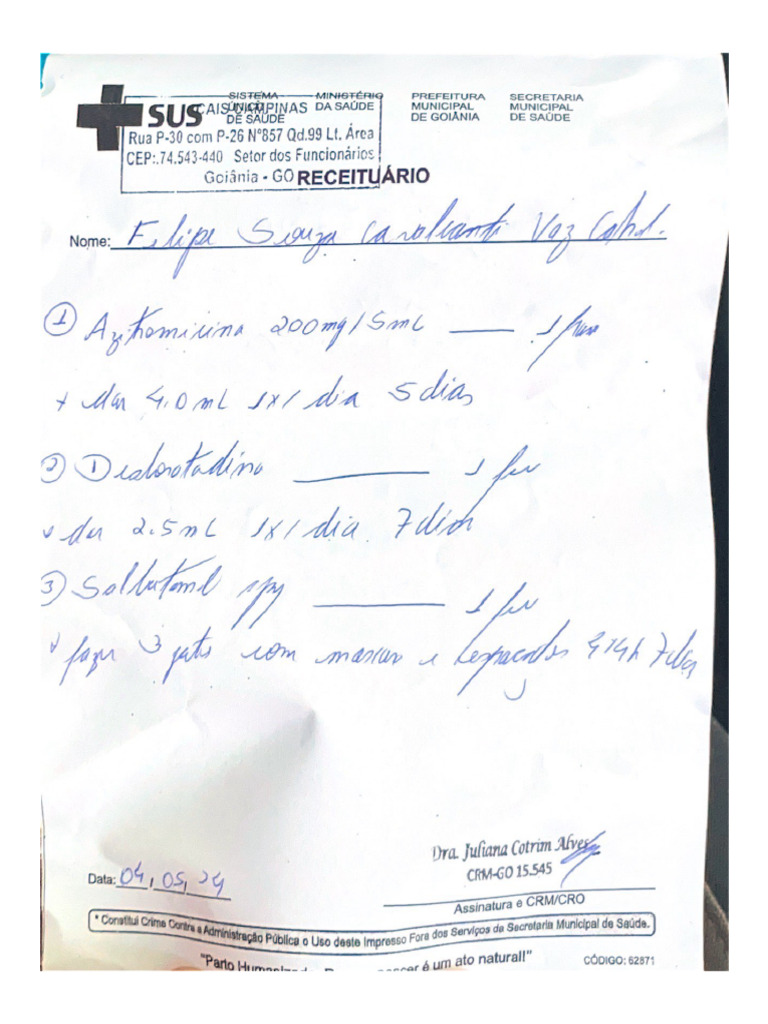 SUS
SISTEMA ÚNICO DE SAÚDE
MINISTÉRIO DA SAÚDE
PREFEITURA MUNICIPAL DE GOIÂNIA
SECRETARIA MUNICIPAL DE SAÚDE
CAIS CAMPINAS
Rua P-30 com P-26 Nº857 Qd.99 Lt. Área
CEP:.74.543-440 Setor dos Funcionários
Goiânia - GO
RECEITUÁRIO
Nome: Felipe Souza Cavalcanti Vaz
① Azitromicina 200mg/5mL 1
+ dar 4.0mL 1x/dia 5 dias
② Desloratadina 1
dar 2.5mL 1x/dia 7 dias
③ Salbutamol spy 1
fazer 3 jatos com mascar e espaçador 4x4h 7 dias
Dra. Juliana Cotrim Alves
CRM-GO 15.545
Data: 04, 05, 24
Assinatura e CRM/CRO
* Constitui Crime Contra a Administração Pública o Uso deste Impresso Fora dos Serviços da Secretaria Municipal de Saúde.
"Parto é um ato natural!"
CÓDIGO: 62871